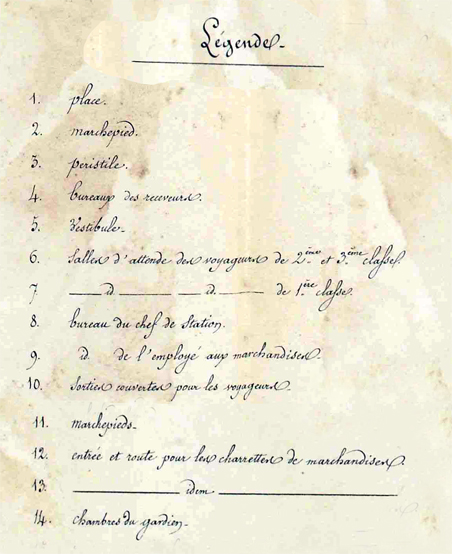 Légende.
1. place.
2. marchepied.
3. peristile.
4. bureaux des receveurs.
5. Vestibule.
6. Salles d'attende des voyageurs de 2.ème et 3.ème classes.
7 ——— id ——— — id. ——— de 1.ère classe.
8. bureau du chef de Station.
9. id. de l'employé aux marchandises.
10. Sorties couvertes pour les voyageurs.
11. marchepieds.
12. entrée et route pour les charrettes de marchandises.
13. ——— idem ———
14. chambres du gardien.